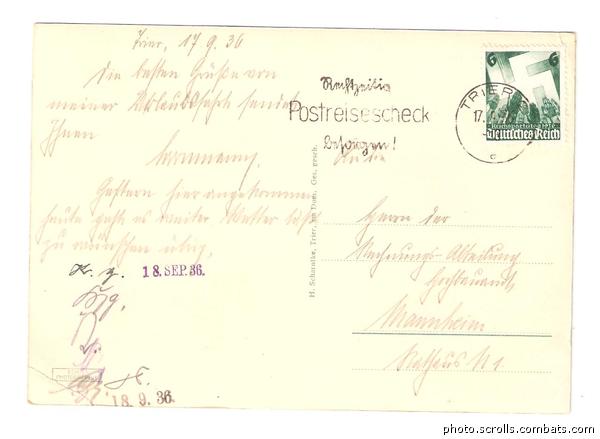 Trier, 17.9.36
Die besten Grüße von
meiner Urlaubsfahrt sendet
Ihnen
Gestern hier angekommen
heute geht es weiter Wetter läßt
zu wünschen übrig.
K. g. 18. SEP. 36.
18. 9. 36.
Rechtzeitig
Postreisescheck
besorgen!
TRIER
17.
c
6 6
Reichsparteitag 1936
Deutsches Reich
H. Schmutke, Trier, im Dom. Ges. gesch.
An die
Herrn der
Rechnungs-Abteilung
Hochbauamt,
Mannheim
Rathaus N 1
photo.scrolls.combats.com